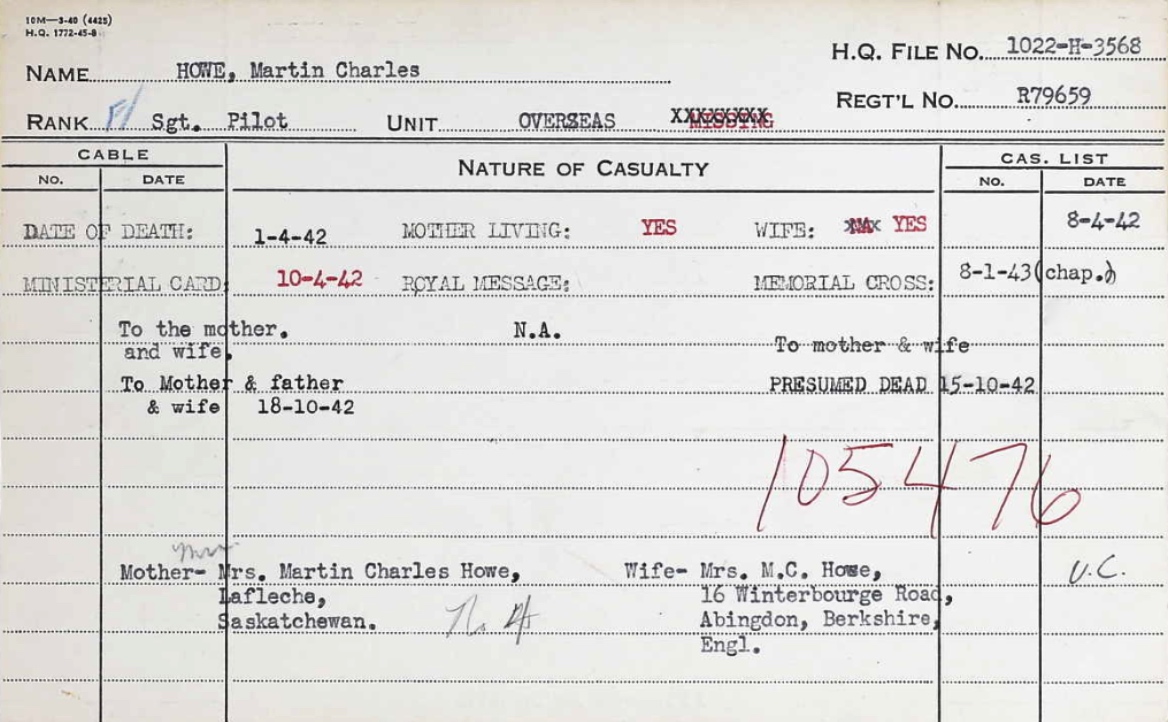 10M—3-40 (4425)
H.Q. 1772-45-8
NAME HOWE, Martin Charles
H.Q. FILE NO. 1022-H-3568
REGT'L NO. R79659
RANK F/ Sgt. Pilot UNIT OVERSEAS MISSING
CABLE NATURE OF CASUALTY CAS. LIST
NO. DATE NO. DATE
DATE OF DEATH: 1-4-42 MOTHER LIVING: YES WIFE: NA YES 8-4-42
MINISTERIAL CARD: 10-4-42 ROYAL MESSAGE: MEMORIAL CROSS: 8-1-43(chap.)
To the mother. N.A.
and wife. To mother & wife
To Mother & father PRESUMED DEAD 15-10-42
& wife 18-10-42
105476
Mother- Mrs. Martin Charles Howe, Wife- Mrs. M.C. Howe, U.C.
Lafleche, 16 Winterbourge Road,
Saskatchewan. Abingdon, Berkshire,
Engl.